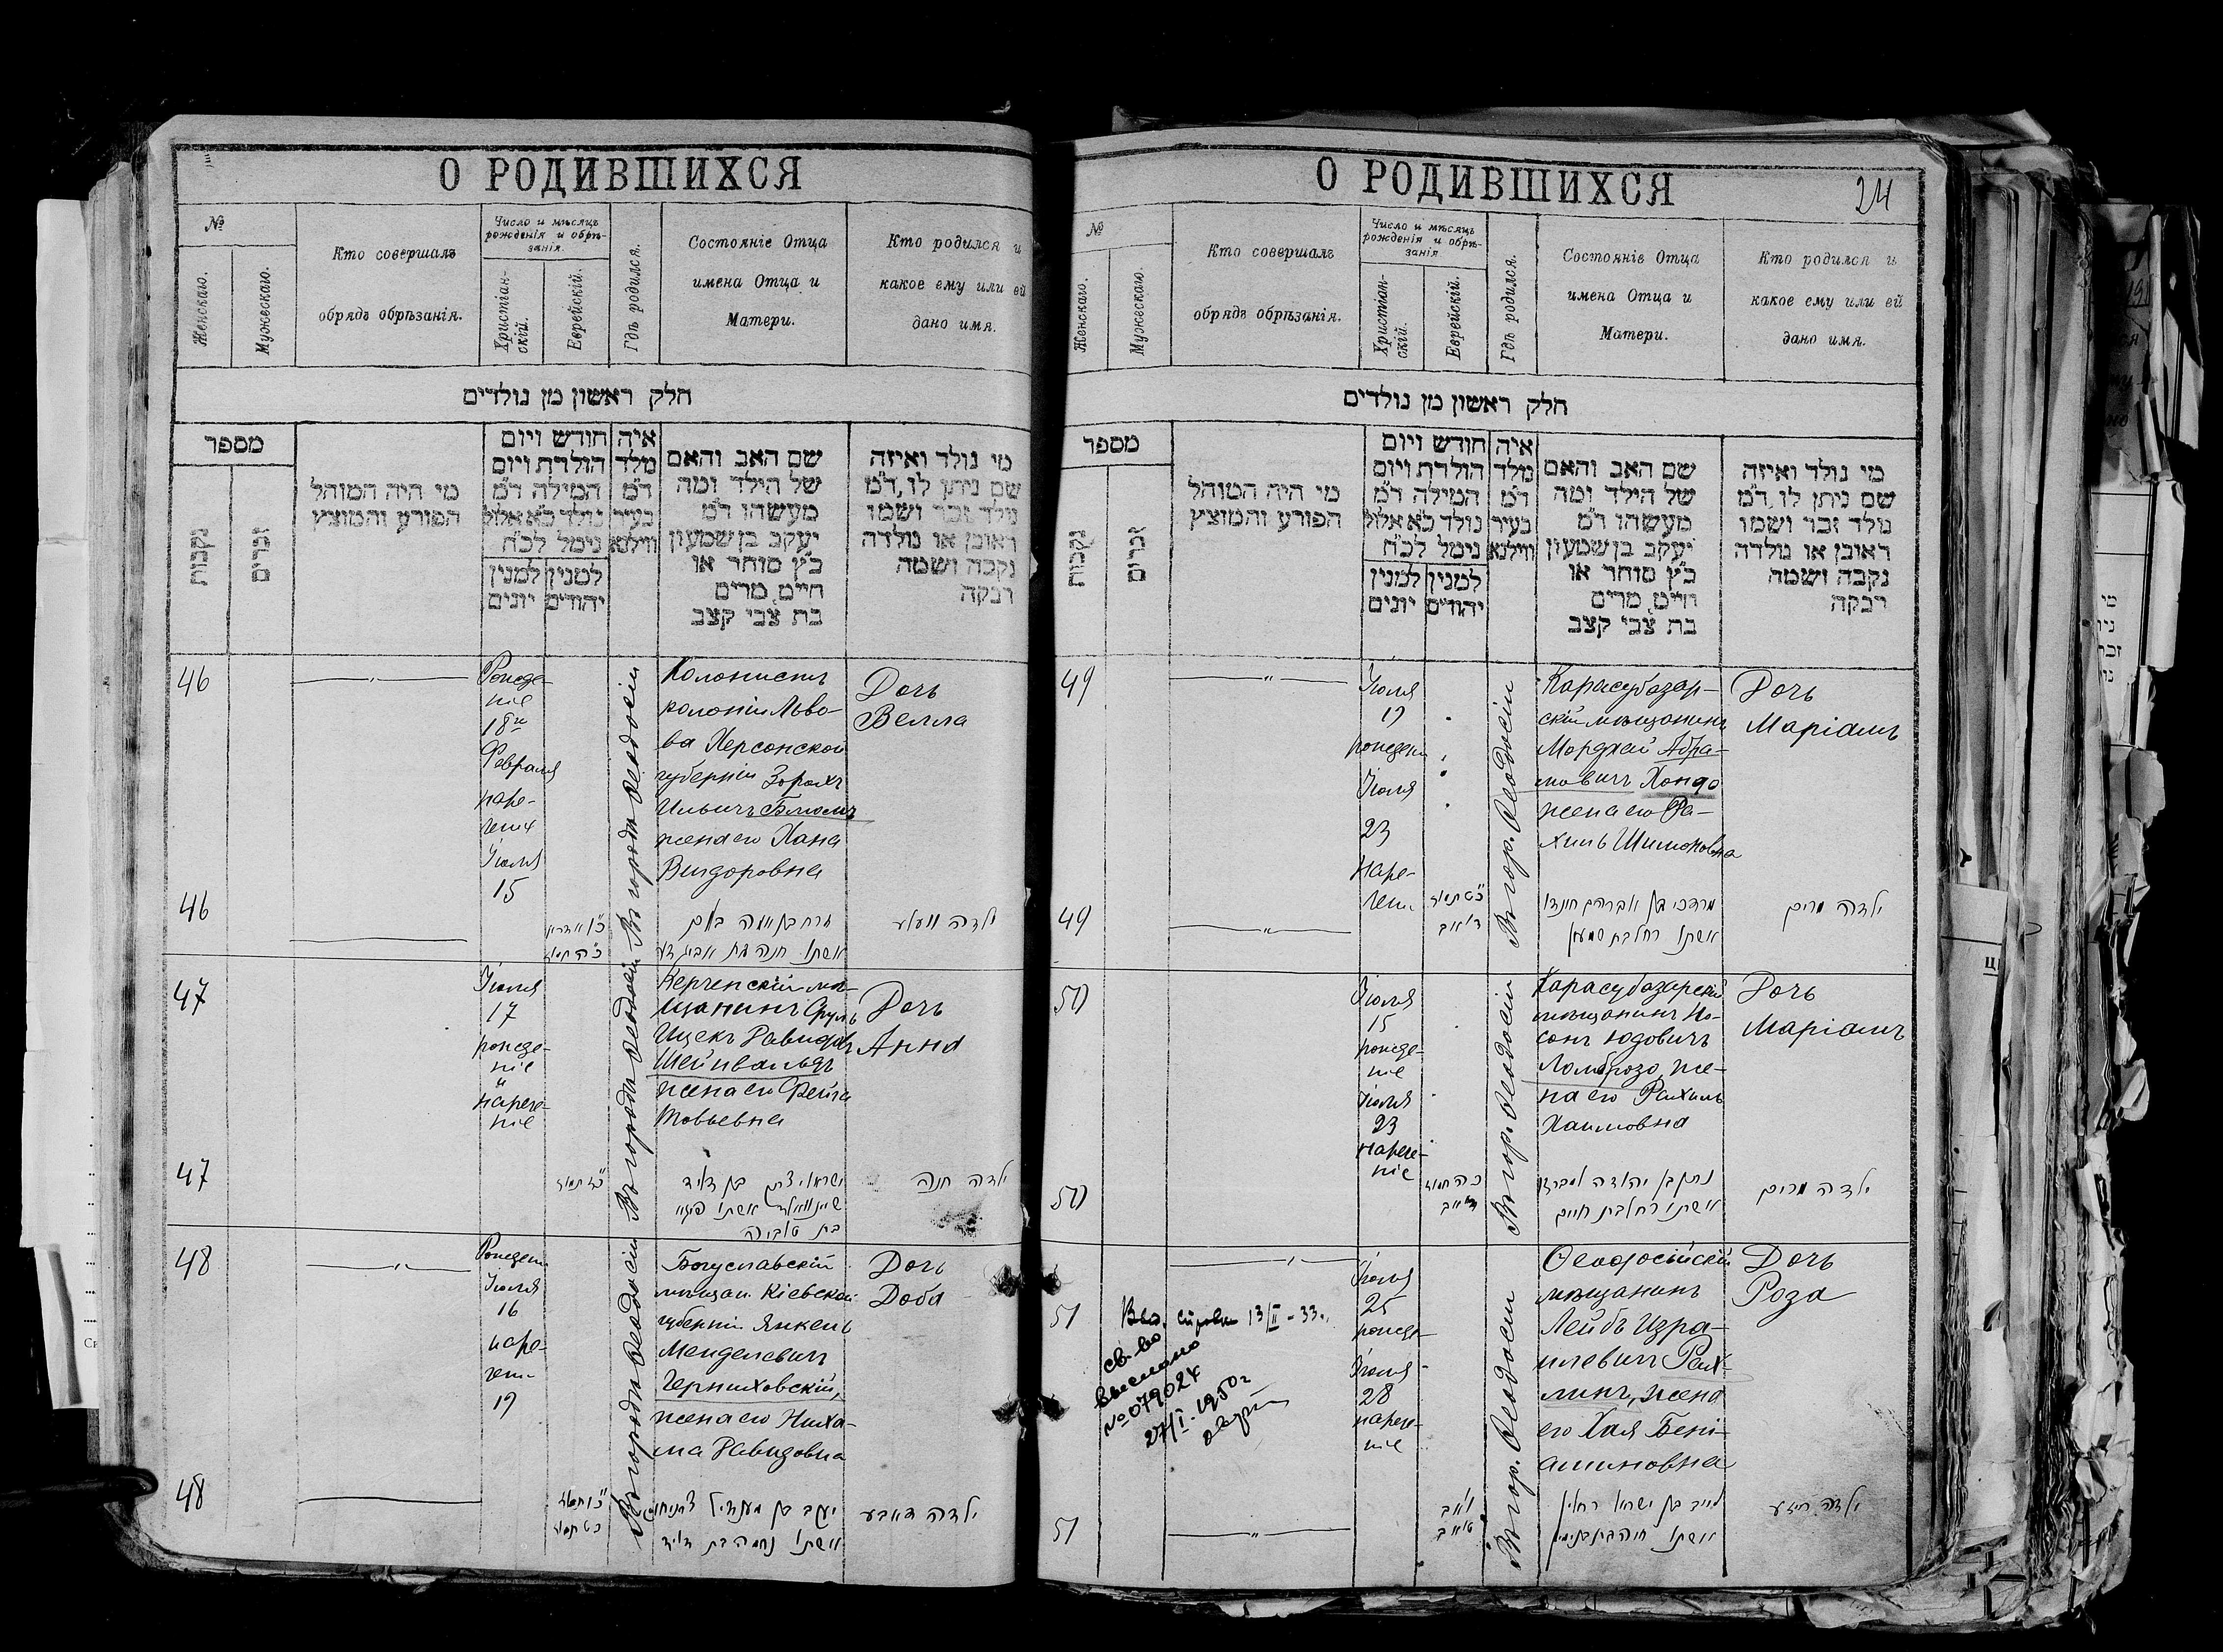 О РОДИВШИХСЯ
№
Женскаго.
Мужескаго.
Кто совершалъ
обрядъ обрѣзанія.
Число и мѣсяцъ
рожденія и обрѣ-
занія.
Христіан-
скій.
Еврейскій.
Гдѣ родился.
Состояніе Отца
имена Отца и
Матери.
Кто родился и
какое ему или ей
дано имя.
חלק ראשון מן נולדים
מספר
נקבות
זכרים
מי היה המוהל
הפורע והמוצץ
חודש ויום
הולדת ויום
המילה ד״מ
נולד כ״א אלול
נימל לכ״ח
למנין
יהודים
למנין
יונים
איה
נולד
ד״מ
בעיר
ווילנא
שם האב והאם
של הילד ומה
מעשהו ד״מ
יעקב בן שמעון
כ״ץ סוחר או
חייט, מרים
בת צבי קצב
מי נולד ואיזה
שם ניתן לו, ד״מ
נולד זכר ושמו
ראובן או נולדה
נקבה ושמה
רבקה
46
Рожде-
ніе
18го
Февраля
наре-
чен
Іюля
15
Въ городѣ Ѳеодосіи
Колонистъ
колоніи Льво-
ва Херсонской
губерніи Зорахъ
Ильичъ Блюмъ
жена его Хана
Вигдоровна
Дочь
Велла
46
47
Іюля
17
рожде-
ніе
и
нарече-
ніе
Въ городѣ Ѳеодосіи
Керченскій мѣ-
щанинъ Сруль
Ицекъ Давидовъ
Шейнвальдъ
жена его Фейга
Товьевна
Дочь
Анна
47
ישראל יצחק בן דוד
ילדה חנה
48
Рожден
Іюля
16
наре-
чен
19
Въ городѣ Ѳеодосіи
Богуславскій
мѣщан. Кіевской
губерніи Янкель
Менделевичъ
Черниховскій,
жена его Неха-
ма Давидовна
Дочь
Доба
48
יעקב בן מענדיל
אשתו נחמה בת דוד
ילדה דאבע
О РОДИВШИХСЯ
24
№
Женскаго.
Мужескаго.
Кто совершалъ
обрядъ обрѣзанія.
Число и мѣсяцъ
рожденія и обрѣ-
занія
Христіан-
скій.
Еврейскій.
Гдѣ родился.
Состояніе Отца
имена Отца и
Матери.
Кто родился и
какое ему или ей
дано имя.
חלק ראשון מן נולדים
מספר
נקבות
זכרים
מי היה המוהל
הפורע והמוצץ
חודש ויום
הולדת ויום
המילה ד״מ
נולד כ״א אלול
נימל לכ״ח
למנין
יהודים
למנין
יונים
איה
נולד
ד״מ
בעיר
ווילנא
שם האב והאם
של הילד ומה
מעשהו ד״מ
יעקב בן שמעון
כ״ץ סוחר או
חייט, מרים
בת צבי קצב
מי נולד ואיזה
שם ניתן לו, ד״מ
נולד זכר ושמו
ראובן או נולדה
נקבה ושמה
רבקה
49
Іюля
19
рожден
Іюля
23
наре-
чен.
Въ гор. Ѳеодосіи
Карасубазар-
скій мѣщанинъ
Мордхей Абра-
мовичъ Хондо
жена его Ра-
хиль Шимоновна
Дочь
Маріамъ
49
מרדכי בן אברהם חונדו
אשתו רחל בת שמעון
ילדה מרים
50
Іюля
15
рожде-
ніе
Іюля
23
нарече-
ніе
Въ гор. Ѳеодосіи
Карасубазарскій
мѣщанинъ Но-
сонъ Юдовичъ
Ломброзо, же-
на его Рахиль
Хаимовна
Дочь
Маріамъ
50
נתן בן יהודה לומברוזו
אשתו רחל בת חיים
ילדה מרים
51
13/II - 33.
св-во
выслано
№ 079024
27/I-1950г
Іюля
25
рожде-
Іюля
28
нарече-
ніе
Въ гор. Ѳеодосіи
Ѳеодосійскій
мѣщанинъ
Лейбъ Изра-
илевичъ Рах-
линъ, жена
его Хая Бені-
аминовна
Дочь
Роза
51
לייב בן ישראל רחלין
אשתו חיה בת בנימין
ילדה רויזע